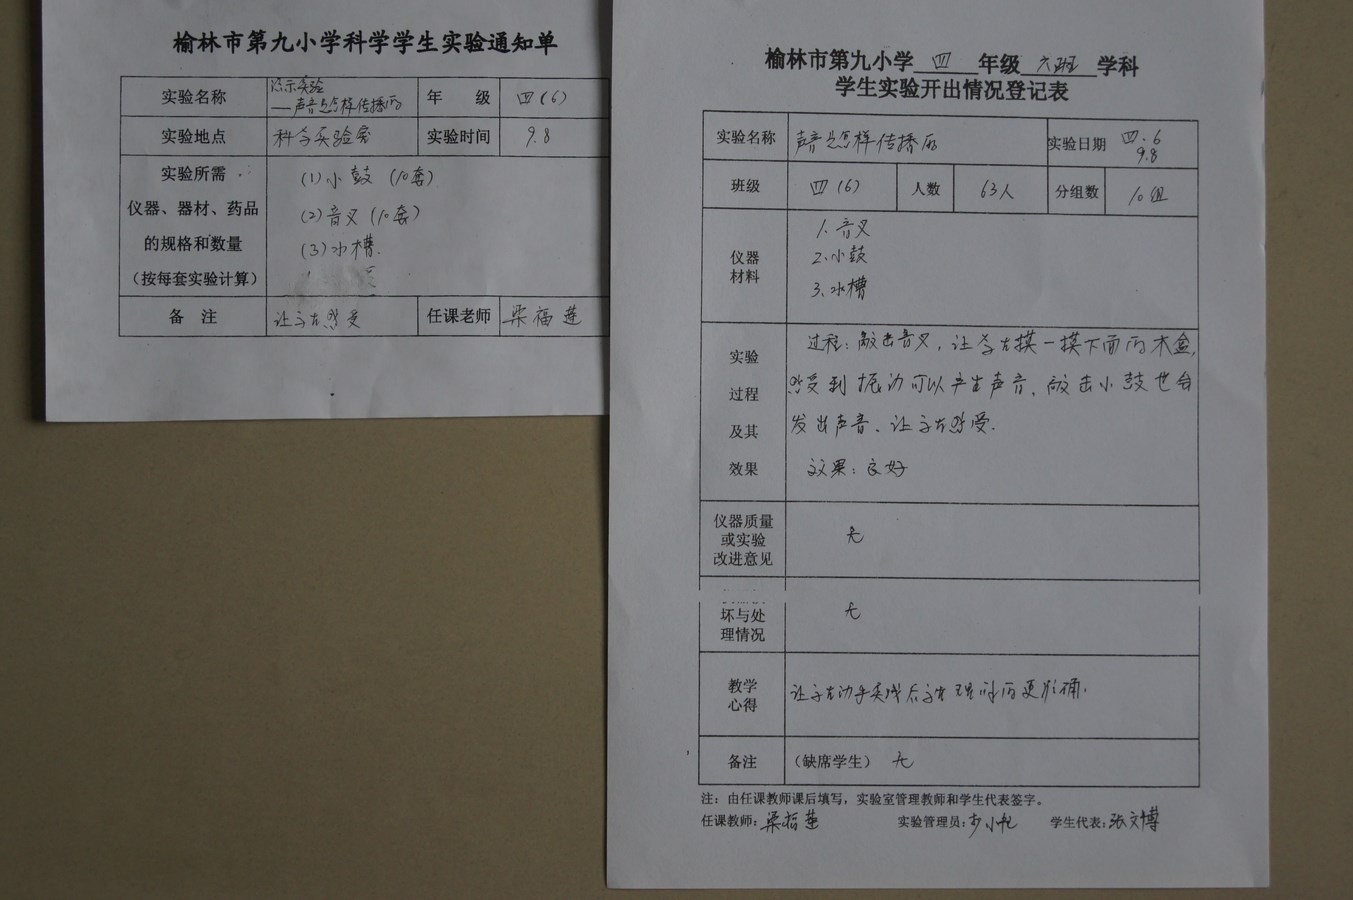 榆林市第九小学科学学生实验通知单
实验名称 演示实验
——声音是怎样传播的
年 级 四(6)
实验地点 科学实验室 实验时间 9.8
实验所需
仪器、器材、药品
的规格和数量
(按每套实验计算)
(1)小鼓(10套)
(2)音叉(10套)
(3)水槽.
备 注 让学生感受 任课老师 梁福莲
榆林市第九小学 四 年级 六班 学科
学生实验开出情况登记表
实验名称 声音是怎样传播的 实验日期 四.6
9.8
班级 四(6) 人数 63人 分组数 10组
仪器
材料
1.音叉
2.小鼓
3.水槽
实验
过程
及其
效果
过程:敲击音叉,让学生摸一摸下面的木盒,
感受到振动可以产生声音、敲击小鼓也会
发出声音、让学生感受.
效果:良好
仪器质量
或实验
改进意见
无
坏与处
理情况
无
教学
心得
让学生动手实践后学生理解的更准确.
备注 (缺席学生) 无
注:由任课教师课后填写,实验室管理教师和学生代表签字。
任课教师:梁福莲 实验管理员: 学生代表:张文博